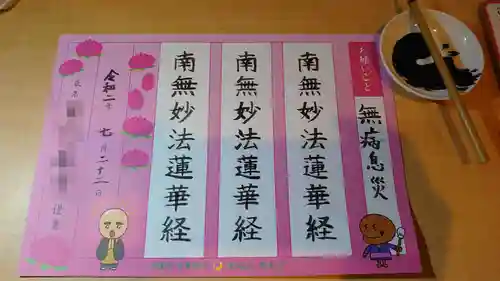 お願いごと
無病息災
南無妙法蓮華経
南無妙法蓮華経
南無妙法蓮華経
令和二年 七月二十二日
氏名